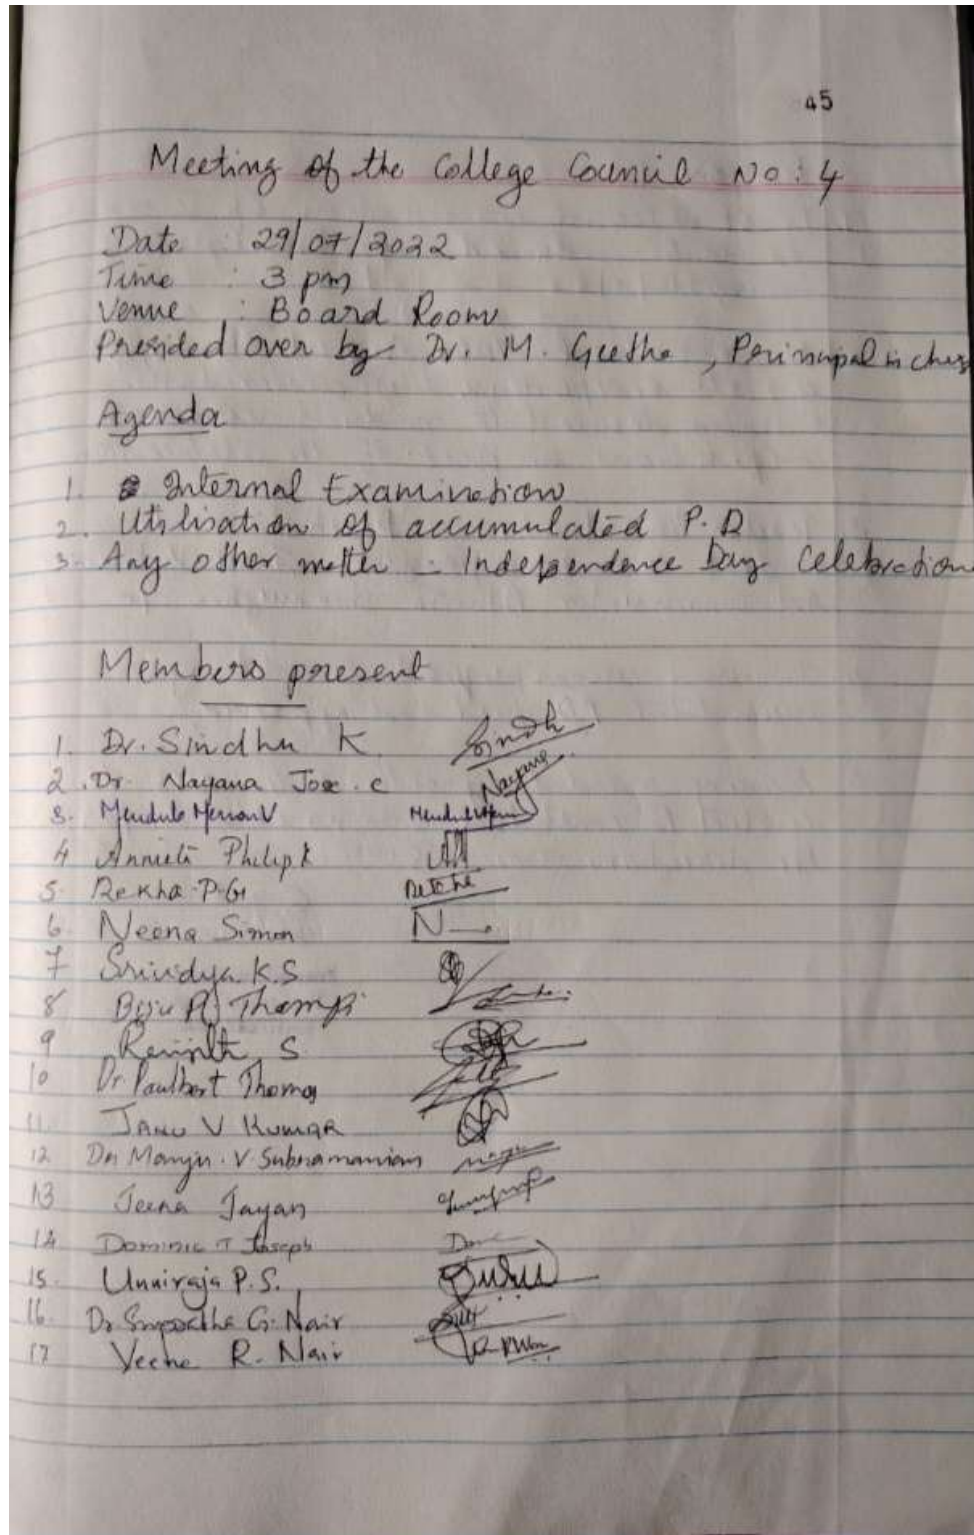 45
Meeting of the College Council No: 4
Date : 29/07/2022
Time : 3 pm
Venue : Board Room
Presided over by Dr. M. Geetha, Principal in
Agenda
1. Internal Examination
2. Utilisation of accumulated P.D
3. Any other matter - Independence Day Celebration
Members present
1. Dr. Sindhu K Sindh
2. Dr Nayana Jose. C Nayana
3. Menon V
4 Philip K
5. Rekha P.G Rekha
6 Neena Simon N
7 Srividya K.S
8 Biju Thampi
9 S
10 Dr. Paulbert Thomas
11. V KUMAR
12 Dr Manju. V. Subramanian
13 Jeena Jayan
14 Dominic T Joseph Dom
15. Unniraja P.S.
16. Dr G. Nair
17 Veena R. Nair